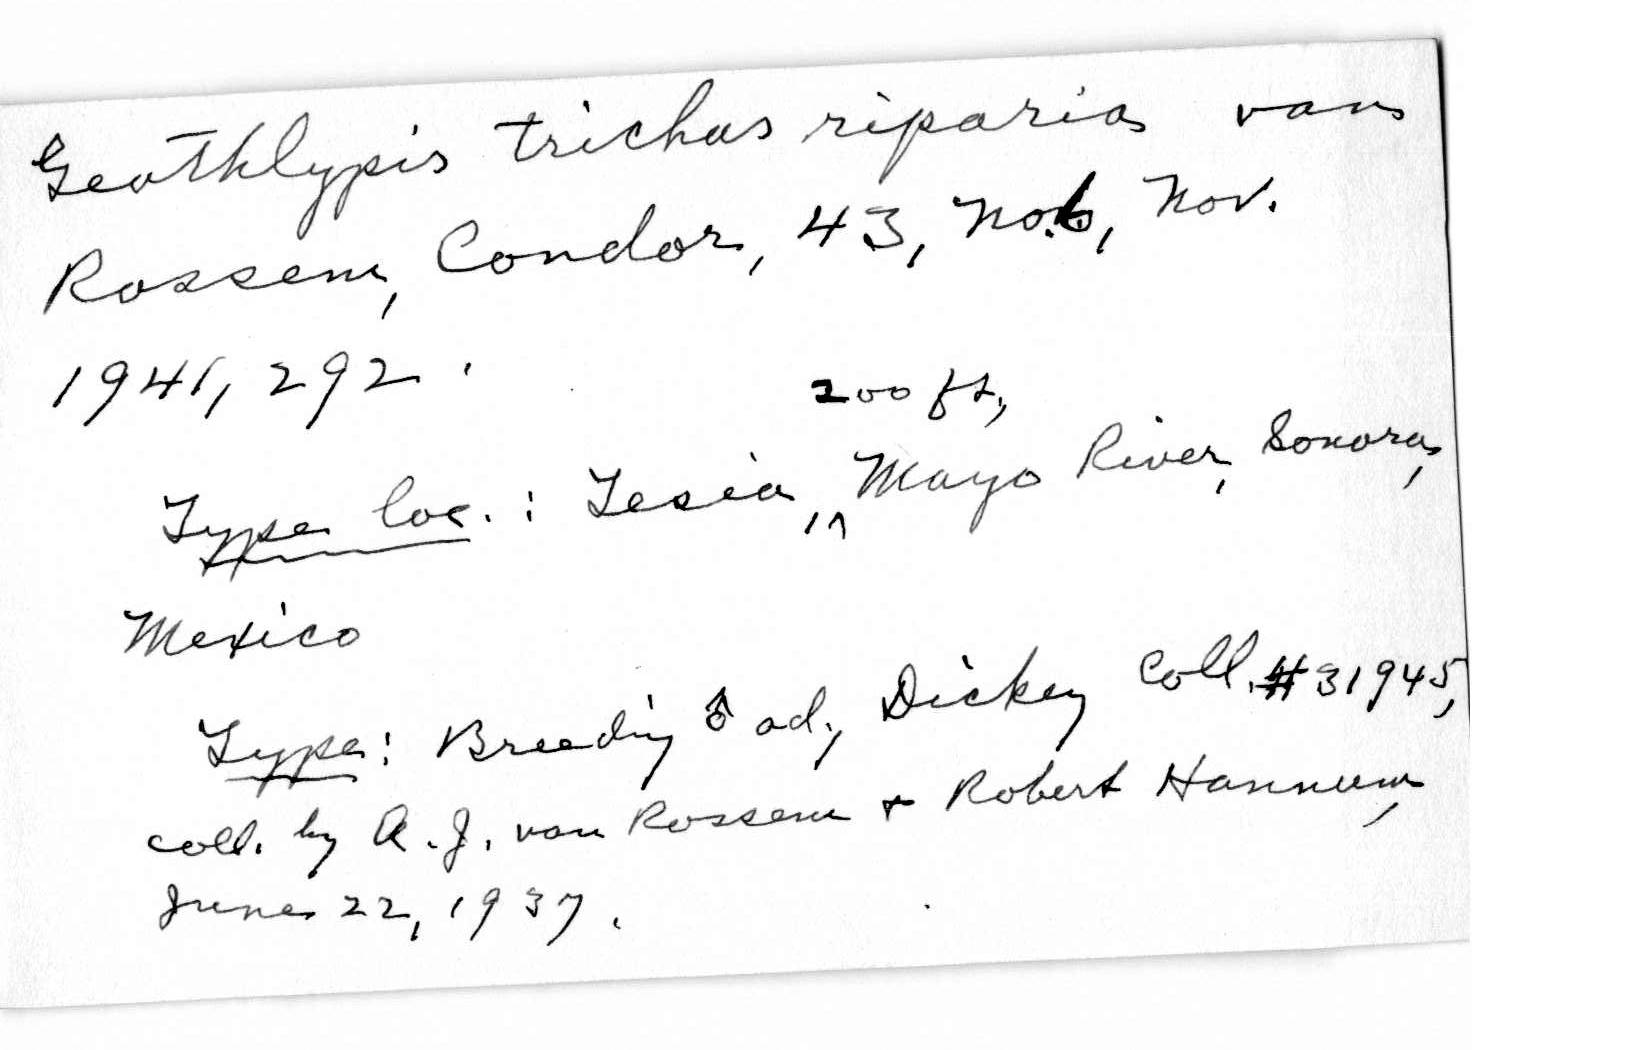 Geothlypis trichas riparia van
Rossem, Condor, 43, no. 6, Nov.
1941, 292.
200 ft.,
Type loc.: Tesia, ^ Mayo River, Sonora,
Mexico
Type: Breeding ♂ ad., Dickey Coll. #31945,
coll. by A. J. van Rossem + Robert Hannum,
June 22, 1937.